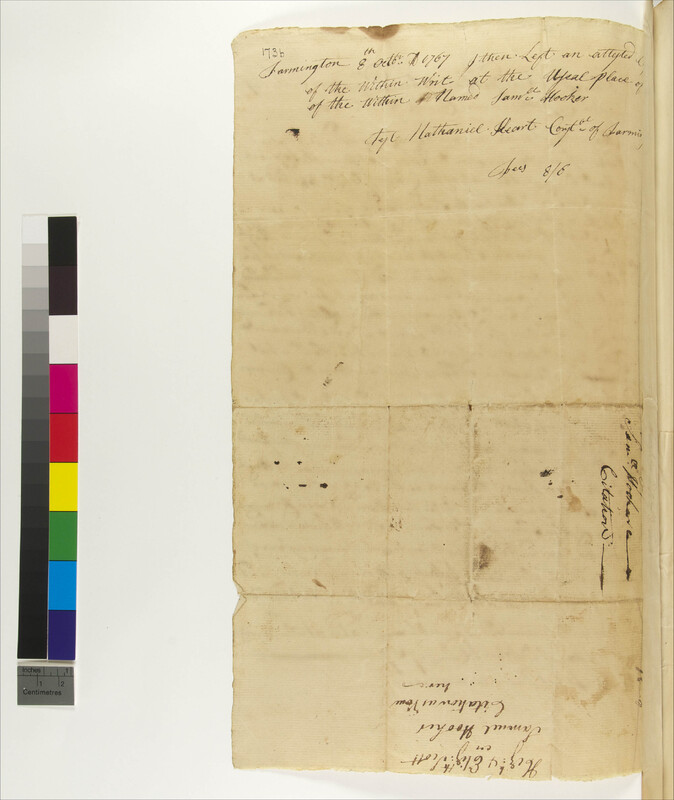 1736
Farmington 8th Octbr AD 1767 I then Left an attested
of the Within Writ at the Useal place of
of the Within Named Samll Hooker
Test Nathaniel Heart Constbl of Farmin
Fees 8/6
Saml Hooker
Citation
Samuel Hooker
Citation
here
Inches 1
1 2
Centimetres